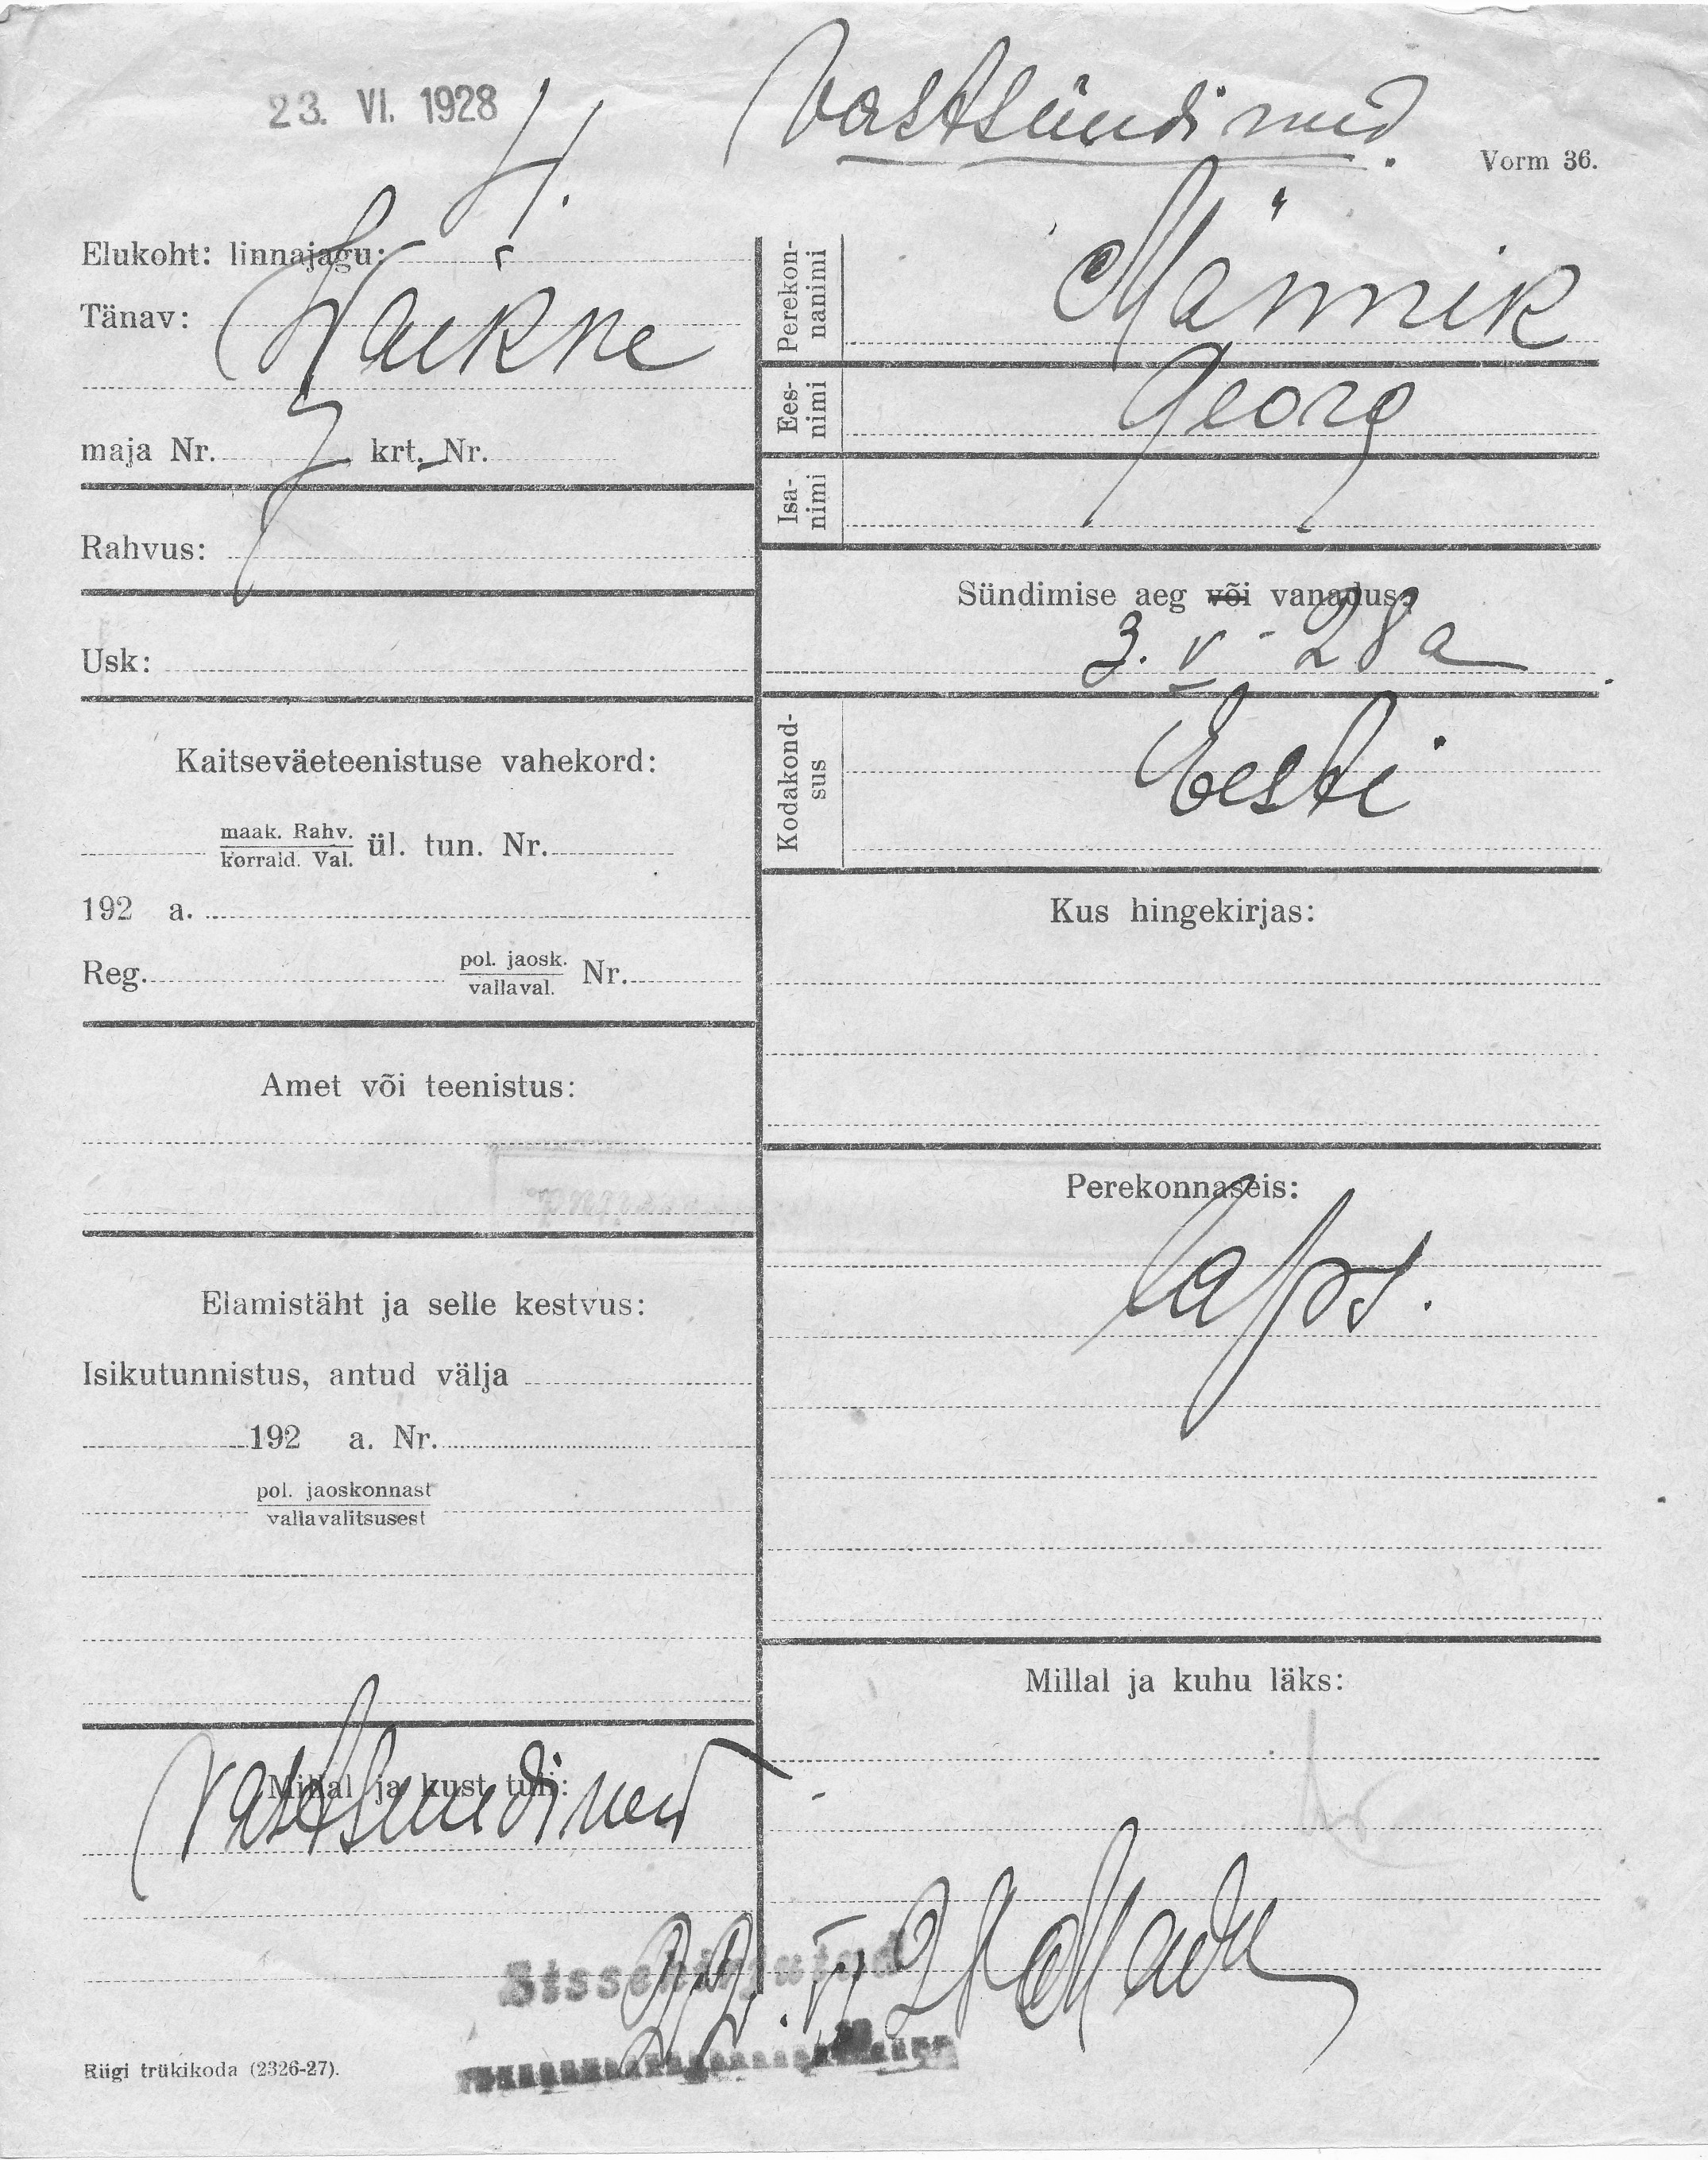 23. VI. 1928
Vastsündinud.
Vorm 36.
Elukoht: linnajagu:
Tänav: Väikne
maja Nr. 7 krt. Nr. –
Rahvus:
Usk:
Kaitseväeteenistuse vahekord:
maak. Rahv.
korrald. Val. ül. tun. Nr.
192 a.
Reg. pol. jaosk.
vallaval. Nr.
Amet või teenistus:
Elamistäht ja selle kestvus:
Isikutunnistus, antud välja
192 a. Nr.
pol. jaoskonnast
vallavalitsusest
Millal ja kust tuli:
Vastsündinud
Perekon-
nanimi
Männik
Ees-
nimi
Georg
Isa-
nimi
Sündimise aeg või vanadus:
3. V - 28 a
Kodakond-
sus
Eesti
Kus hingekirjas:
Perekonnaseis:
laps.
Millal ja kuhu läks:
Sissekirjutud
22. VI 28
Riigi trükikoda (2326-27).